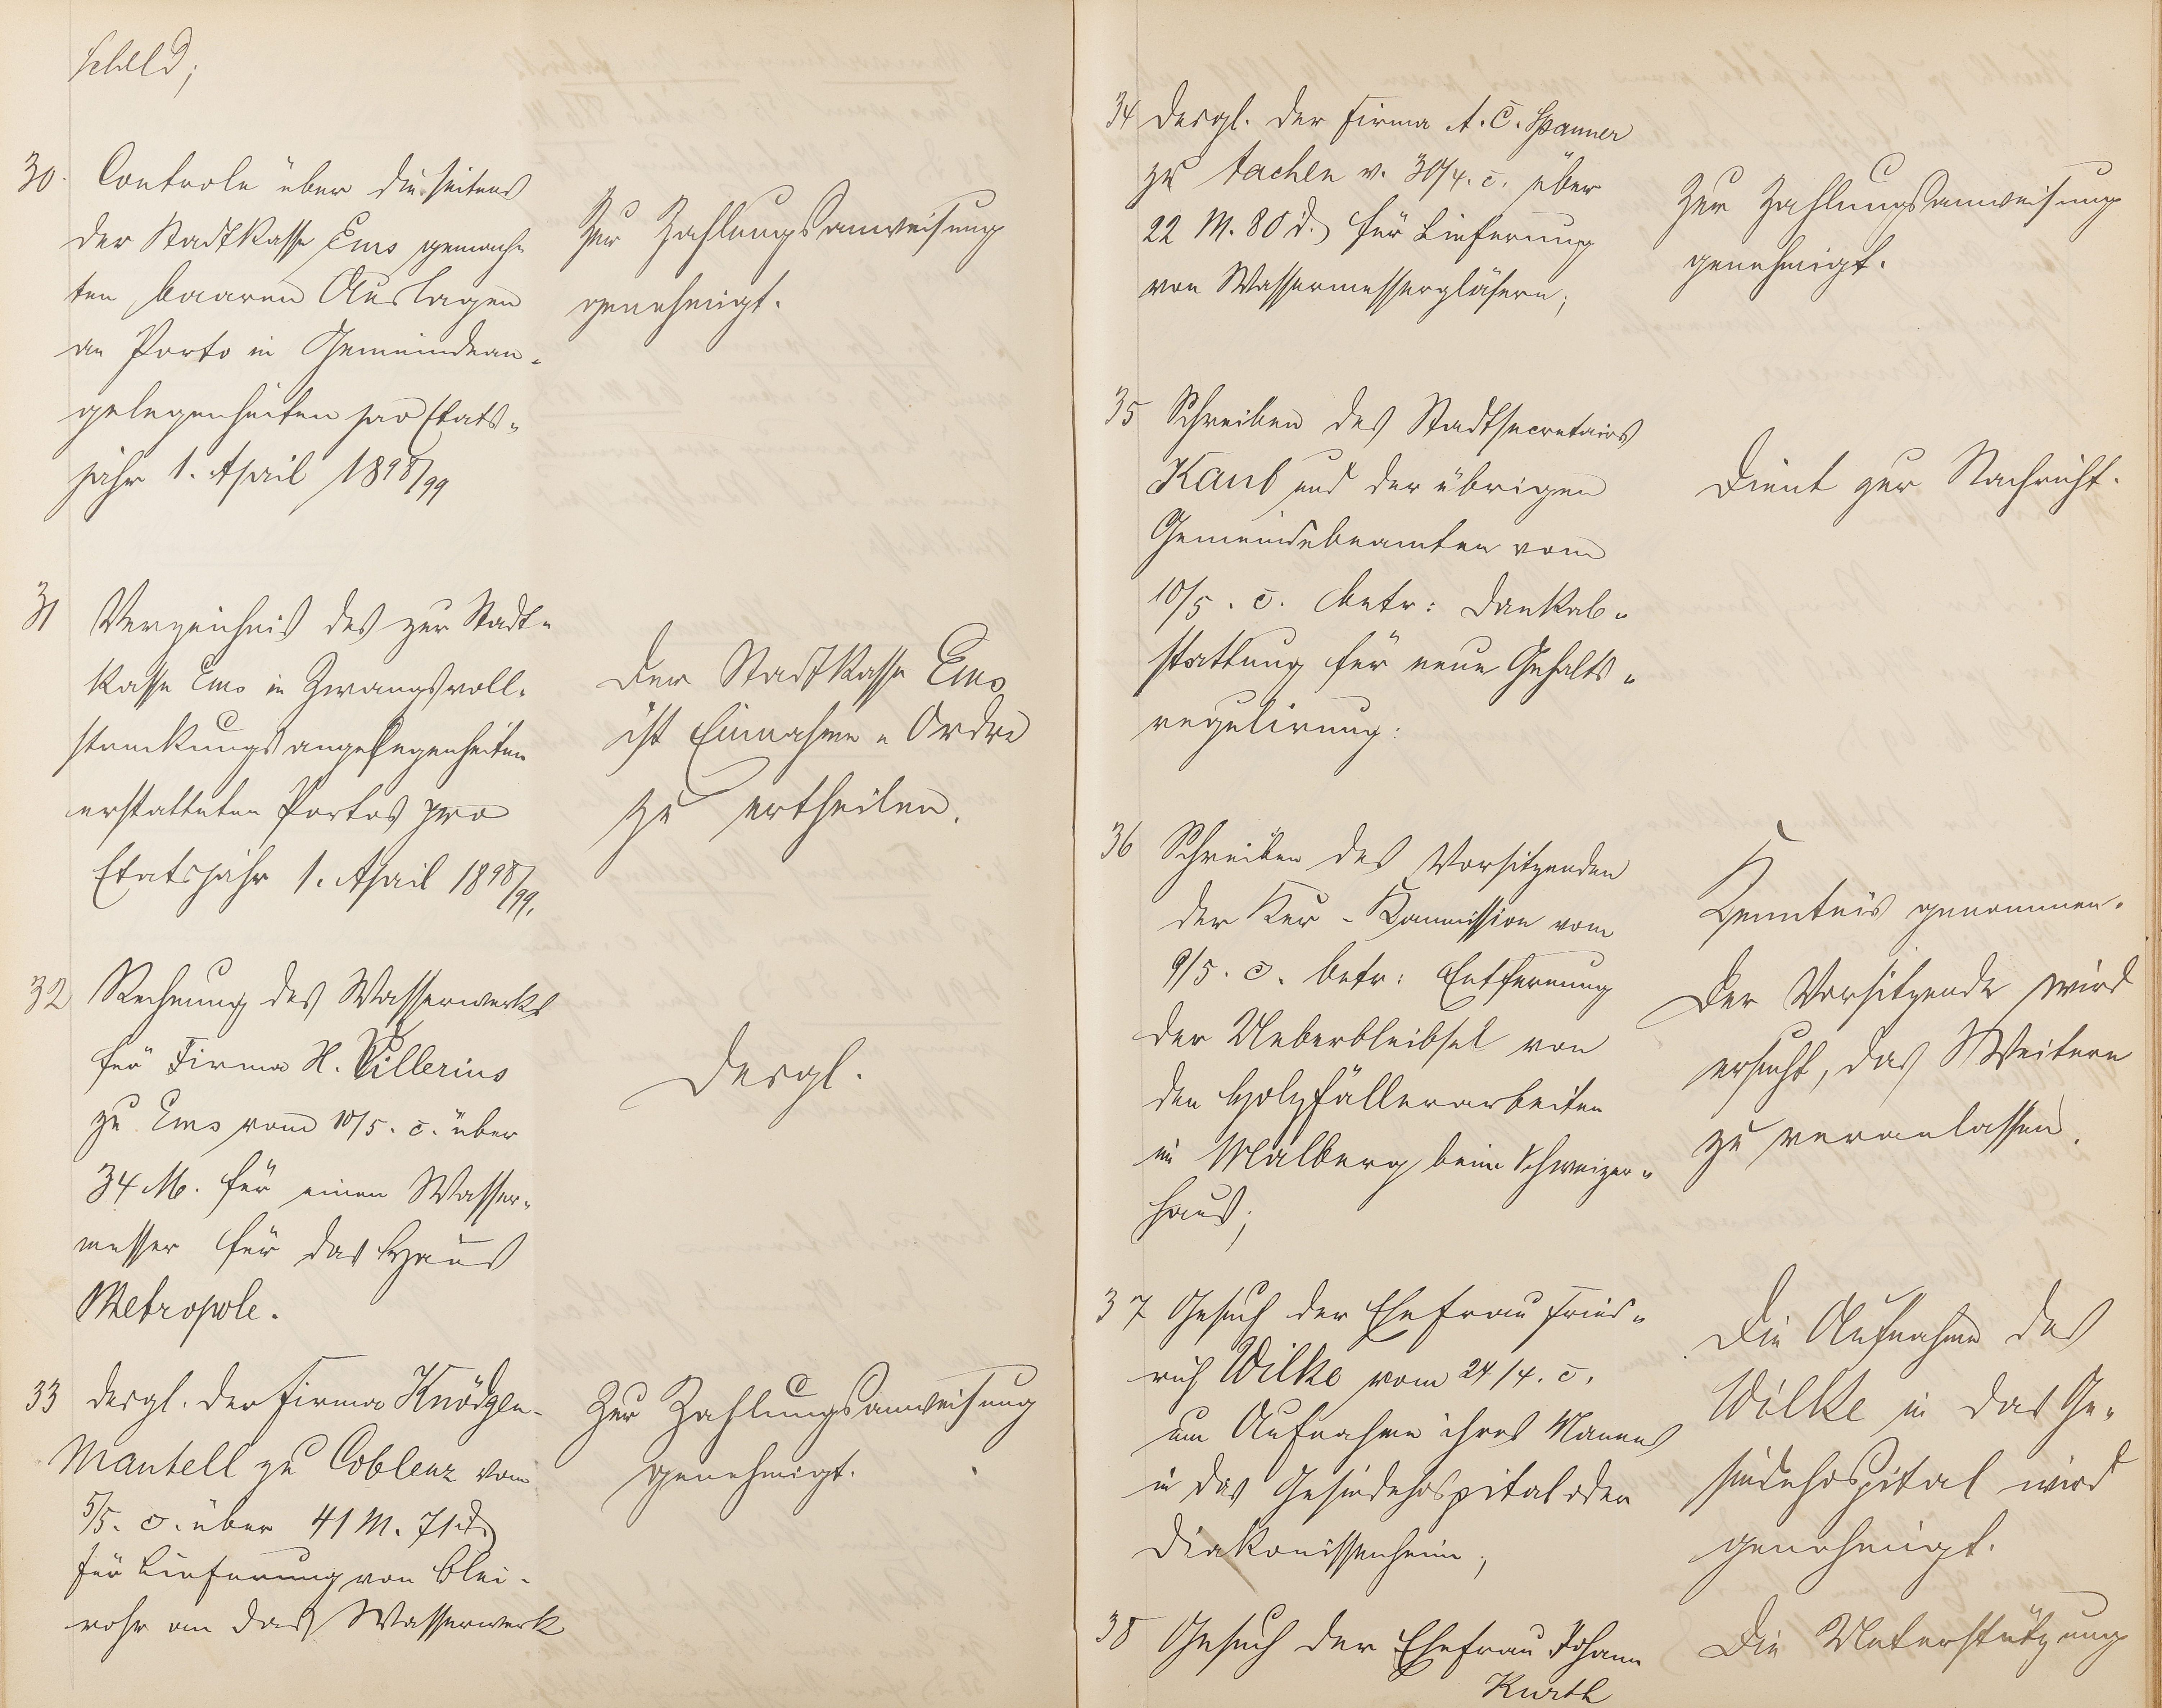 scheld;
30. Controle über die seitens
der Stadtkasse Ems gemach-
ten baaren Auslagen
an Porto in Gemeindean-
gelegenheiten pro Etats-
jahr 1. April 1898/99
Zur Zahlungsanweisung
genehmigt.
31 Verzeichnis des zur Stadt-
kasse Ems in Zwangsvoll-
streckungsangelegenheiten
erstatteten Portos pro
Etatsjahr 1. April 1898/99.
Der Stadtkasse Ems
ist Einnahme-Ordre
zu ertheilen.
32 Rechnung des Wasserwerks
für Firma H. Villerius
zu Ems vom 10/5. c. über
34 M. für einen Wasser-
messer für das Haus
Metropole.
Desgl.
33 desgl. der Firma Knödgen-
Mantell zu Coblenz vom
5/5. c. über 41 M. 71 d.
für Lieferung von Blei-
rohr an das Wasserwerk
Zur Zahlungsanweisung
genehmigt.
34 desgl. der Firma A. C. Spanner
zu Aachen v. 30/4. c. über
22 M. 80 d. für Lieferung
von Wassermessergläsern;
Zur Zahlungsanweisung
genehmigt.
35 Schreiben des Stadtsecretairs
Kaub und der übrigen
Gemeindebeamten vom
10/5. c. betr: Dankab-
stattung für neue Gehalts-
regulirung:
Dient zur Nachricht.
36 Schreiben des Vorsitzenden
der Kur-Kommission vom
9/5. c. betr: Entfernung
der Ueberbleibsel von
den Holzfällerarbeiten
im Malberg beim Schweizer-
haus;
Kenntnis genommen.
Der Vorsitzende wird
ersucht, das Weitere
zu veranlassen.
37 Gesuch der Ehefrau Fried-
rich Wilke vom 24/4. c.
um Aufnahme ihres Mannes
in das Gesindehospital oder
Diakonissenheim;
Die Aufnahme des
Wilke in das Ge-
sindehospital wird
genehmigt.
38 Gesuch der Ehefrau Johann
Kurth
Die Unterstützung